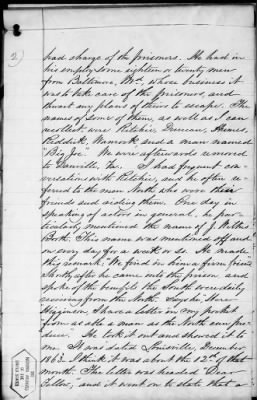 2)
had charge of the prisoners. He had in
his employ some eighteen or twenty men
from Baltimore, Md., whose business it
was to take care of the prisoners, and
thwart any plans of theirs to escape. The
names of some of them, as well as I can
recollect, were Ritchie, Duncan, Humes,
Reddick, Warnock and a man named
"Big Joe". We were afterward removed
to Danville, Va. I had frequent con-
versations with Ritchie, and he often re-
ferred to the men North who were their
friends and aiding them. One day in
speaking of actors in general, he par-
ticularly mentioned the name of J. Wilkes
Booth. This name was mentioned off and
on every day for a week or so. He made
this remark, "We find in him a firm friend."
Shortly after he came into the prison and
spoke of the benefits the South were daily
receiving from the North. Says he "Here
Higginson, I have a letter in my pocket
from as able a man as the North can pro-
duce". He took it out and showed it to
me. It was dated Louisville, December
1863. I think it was about the 12th of that
month. The letter was headed "Dear
", and it went on to state that a